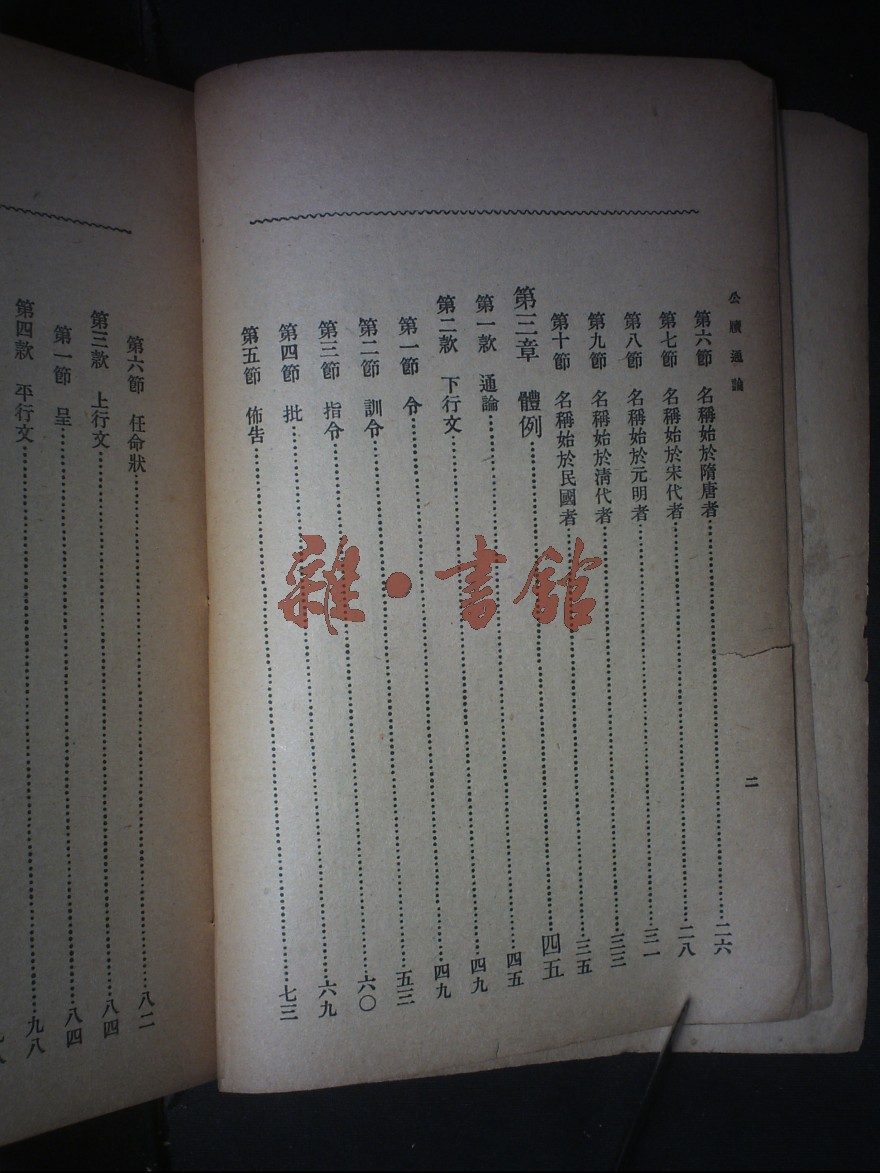 公牘通論
二
第六節 名稱始於隋唐者……二六
第七節 名稱始於宋代者……二八
第八節 名稱始於元明者……三一
第九節 名稱始於清代者……三三
第十節 名稱始於民國者……三五
第三章 體例……四五
第一款 通論……四五
第二款 下行文……四九
第一節 令……四九
第二節 訓令……五三
第三節 指令……六〇
第四節 批……六九
第五節 佈告……七三
第六節 任命狀……八二
第三款 上行文……八四
第一節 呈……八四
第四款 平行文……九八
雜·書館